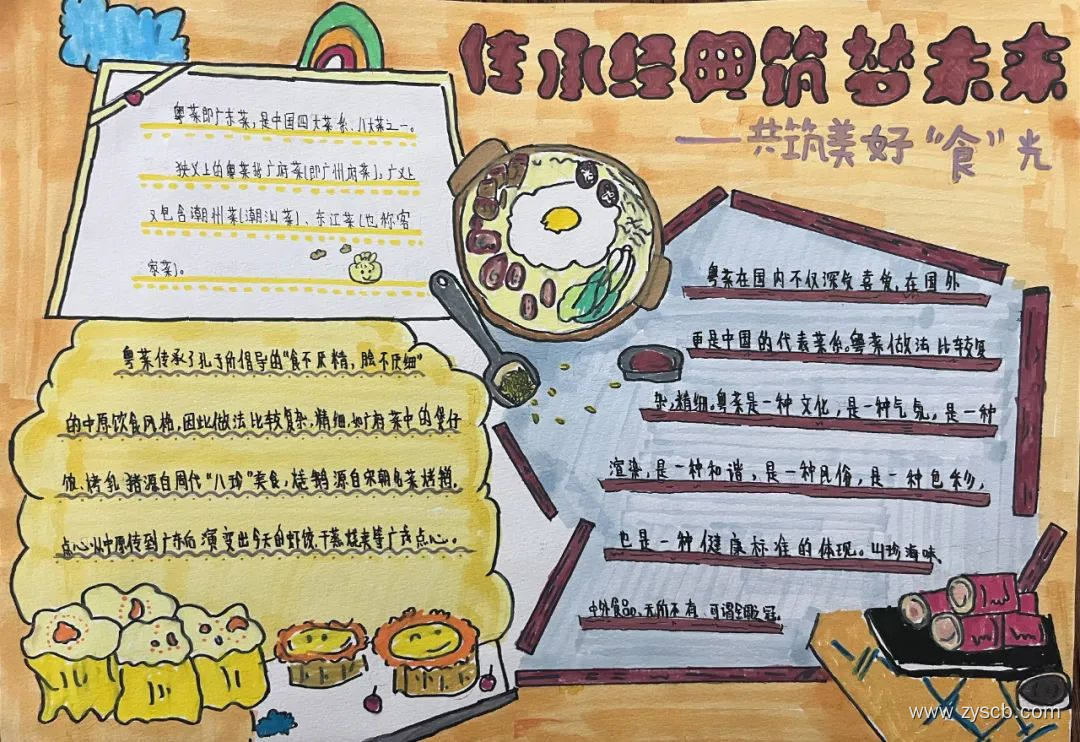 传承经典筑梦未来
——共筑美好“食”光
粤菜即广东菜，是中国四大菜系、八大菜之一。
狭义上的粤菜指广府菜(即广州府菜)。广义上
又包含潮州菜(潮汕菜)、东江菜(也称客
家菜)。
粤菜传承了孔子所倡导的“食不厌精，脍不厌细”
的中原饮食风格，因此做法比较复杂，精细。如广府菜中的煲仔
饭、烤乳猪源自周代“八珍”美食，烧鹅源自宋朝名菜烤鸭。
点心从中原传到广东后演变出今天的虾饺、干蒸烧卖等广式点心。
粤菜在国内不仅深受喜爱，在国外
更是中国的代表菜系。粤菜做法比较复
杂，精细。粤菜是一种文化，是一种气氛，是一种
渲染，是一种和谐，是一种民俗，是一种色彩，
也是一种健康标准的体现。山珍海味、
中外食品、无所不有，可谓全国之冠。
www.zyscb.com